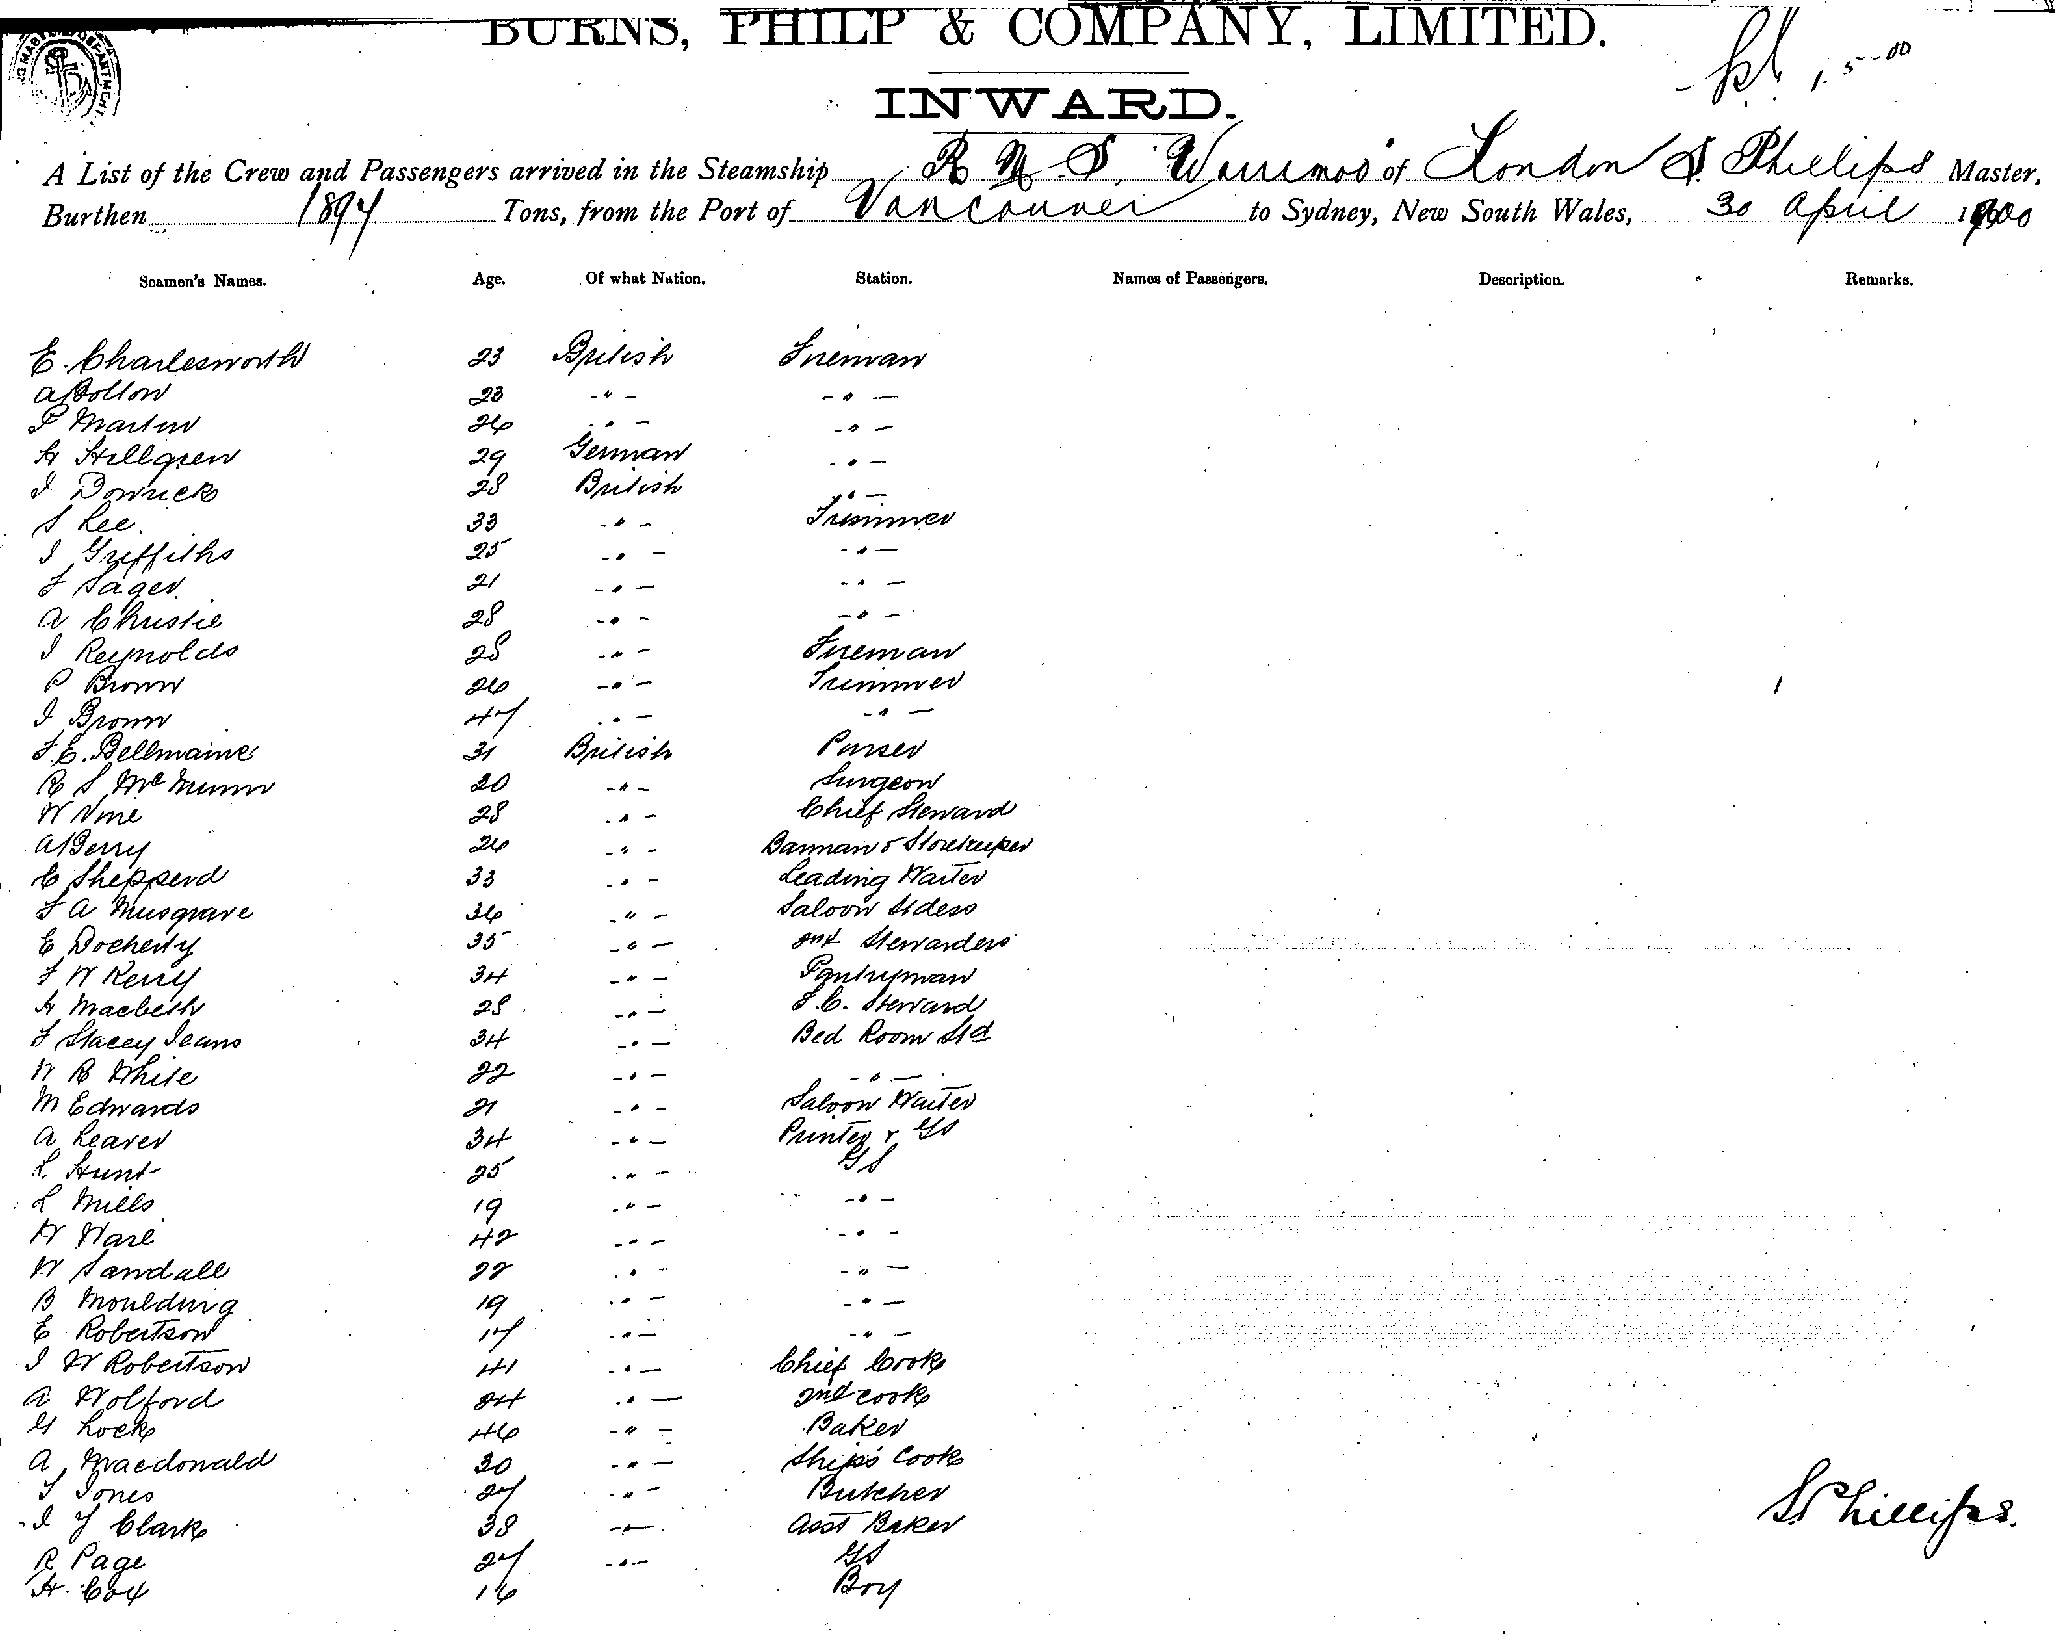 BURNS, PHILP & COMPANY, LIMITED.
INWARD.
A List of the Crew and Passengers arrived in the Steamship R.M.S. Warrimoo of London S. Phillips Master,
Burthen 1897 Tons, from the Port of Vancouver to Sydney, New South Wales, 30 April 1900
Seamen's Names. Age. Of what Nation. Station. Names of Passengers. Description. Remarks.
E. Charlesworth 23 British Fireman
A Bolton 23 - " - - " -
P Martin 26 - " - - " -
H Hellgren 29 German - " -
J Dowrick 28 British - " -
S Lee. 33 - " - Trimmer
J Griffiths 25 - " - - " -
F Sager. 21 - " - - " -
A Christie 28 - " - - " -
J Reynolds 28 - " - Fireman
P Brown 26 - " - Trimmer
J Brown 47 - " - - " -
F E. Bellmaine 31 British Purser
R S McMunn 20 - " - Surgeon
W Vine 28 - " - Chief Steward
A Berry 26 - " - Barman & Storekeeper
C Shepperd 33 - " - Leading Waiter
F A Musgrave 36 - " - Saloon Stdess
E Docherty 35 - " - 2nd Stewardess
F W Kerry 34 - " - Pantryman
H Macbeth 28 - " - S.C. Steward
F Stacey Jeans 34 - " - Bed Room Std
W R White 22 - " - - " -
M Edwards 21 - " - Saloon Waiter
A Leaver 34 - " - Printer & GS
L Hunt 25 - " - GS
L Mills 19 - " - - " -
W Ware 42 - " - - " -
W Sandall 22 - " - - " -
B Moulding 19 - " - - " -
E Robertson 17 - " - - " -
J W Robertson 41 - " - Chief Cook
A Wolford 24 - " - 2nd Cook
G Lock 46 - " - Baker
A Macdonald 30 - " - Ship's Cook
T Jones 27 - " - Butcher
J Y Clark 38 - " - Asst Baker
R Page 27 - " - GS
H. Cox 16 Boy
S Phillips.